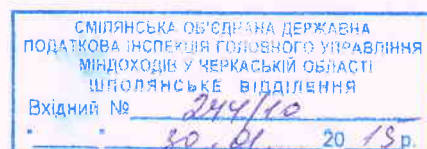 СМІЛЯНСЬКА ОБ'ЄДНАНА ДЕРЖАВНА
ПОДАТКОВА ІНСПЕКЦІЯ ГОЛОВНОГО УПРАВЛІННЯ
МІНДОХОДІВ У ЧЕРКАСЬКІЙ ОБЛАСТІ
ШПОЛЯНСЬКЕ ВІДДІЛЕННЯ
Вхідний № 244/10
" " 30.01. 2015 р.